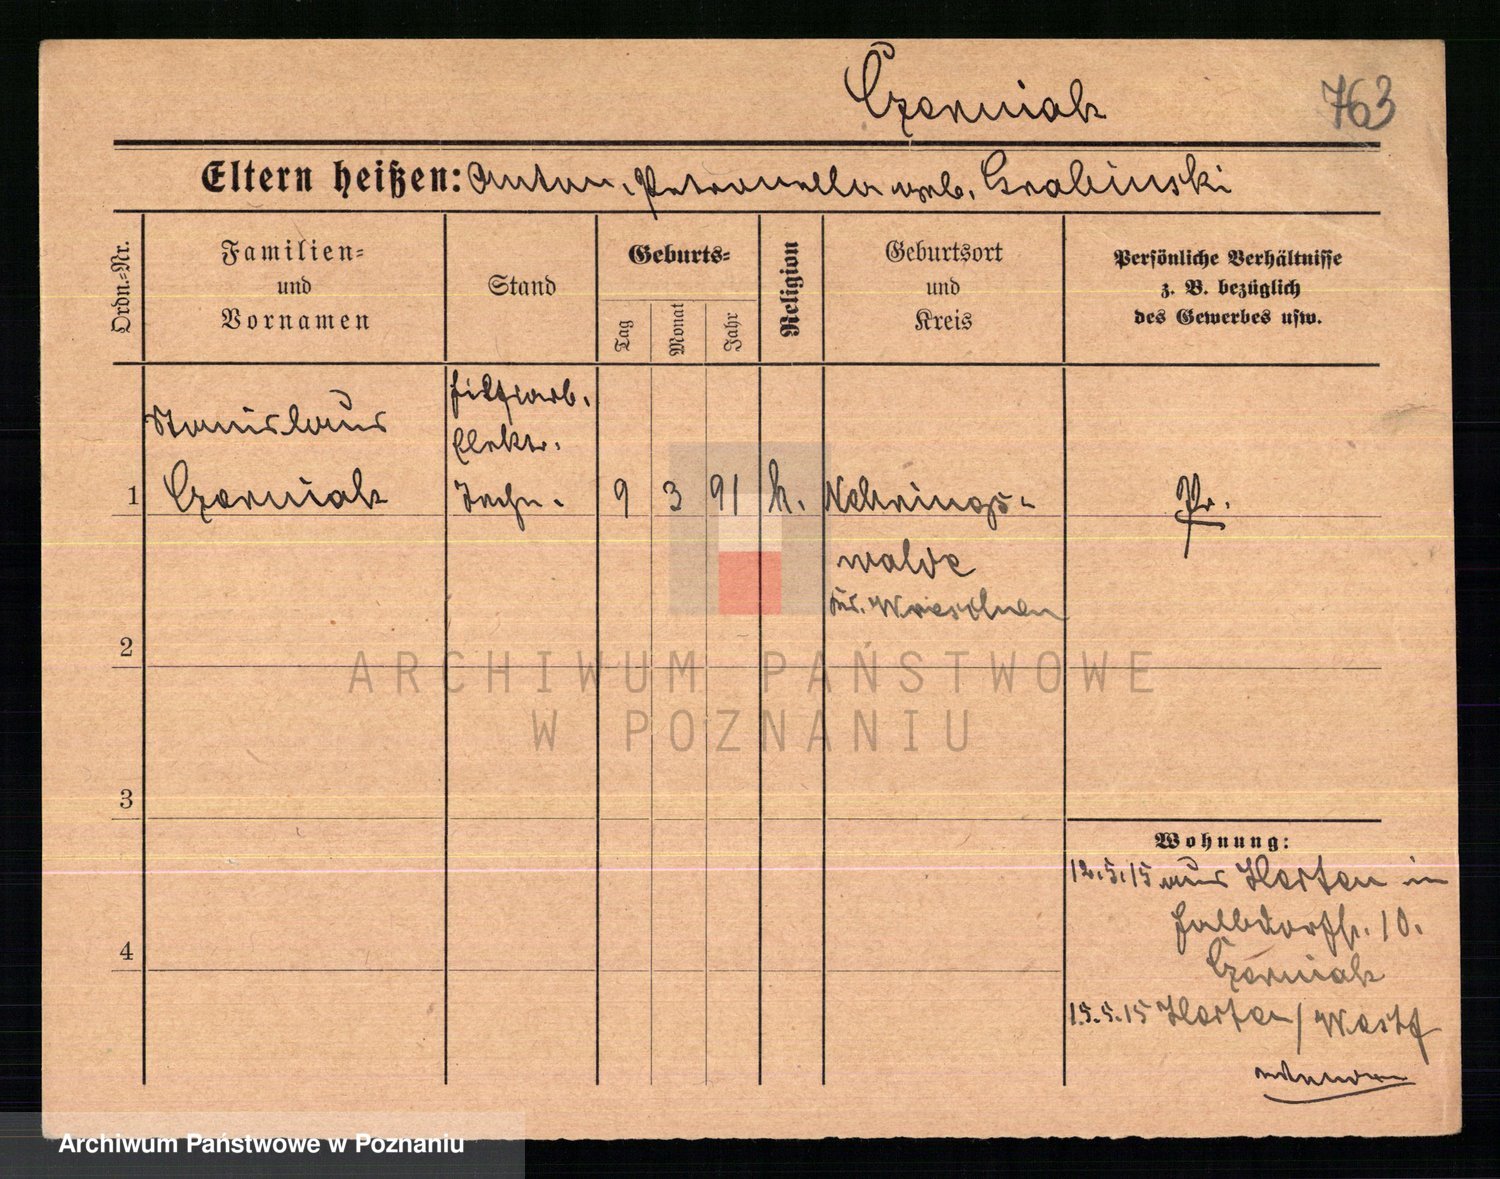 Czerniak
763
Eltern heißen: Anton, Petronella geb. Grabinski
Ordn.-Nr.
Familien-
und
Vornamen
Stand
Geburts-
Tag
Monat
Jahr
Religion
Geburtsort
und
Kreis
Persönliche Verhältnisse
z. B. bezüglich
des Gewerbes usw.
Stanislaus
Czerniak
Elektr.
1
9
3
91
k.
Nehrings-
walde
Kr. Wreschen
Pr.
2
3
4
Wohnung:
12.5.15 aus Horten in
10.
Czerniak
15.5.15 Horten/Westf
ARCHIWUM PAŃSTWOWE
W POZNANIU
Archiwum Państwowe w Poznaniu